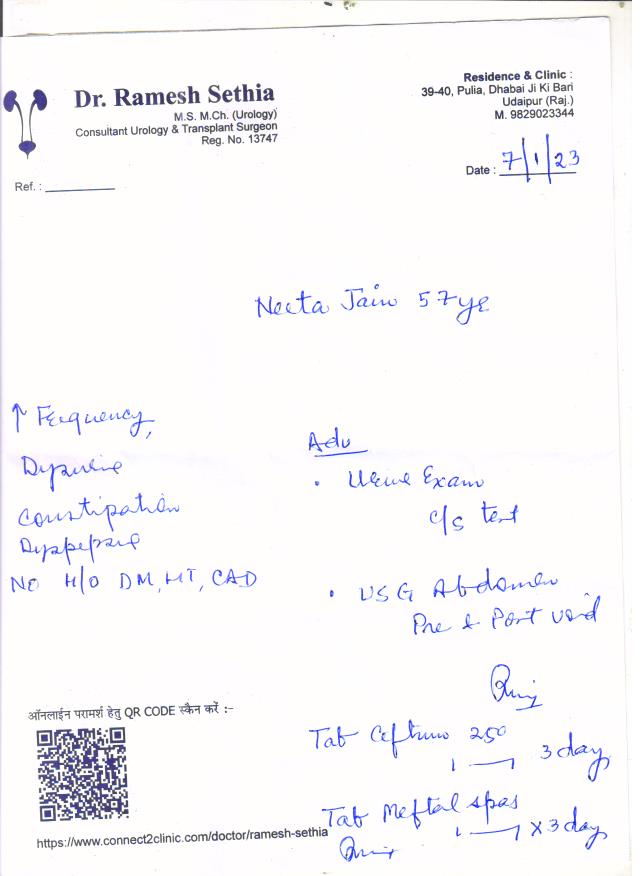 Dr. Ramesh Sethia
M.S. M.Ch. (Urology)
Consultant Urology & Transplant Surgeon
Reg. No. 13747
Residence & Clinic :
39-40, Pulia, Dhabai Ji Ki Bari
Udaipur (Raj.)
M. 9829023344
Ref. :
Date : 7/1/23
Neeta Jain 57 yr
↑ Frequency,
Dysuria
Constipation
Dyspepsia
NO H/O DM, HT, CAD
Adv
• Urine Exam
C/S test
• USG Abdomen
Pre & Post void
Tab 250
1 — 1 3 day
Tab Meftal spas
1 — 1 x 3 day
ऑनलाईन परामर्श हेतु QR CODE स्कैन करें :-
https://www.connect2clinic.com/doctor/ramesh-sethia